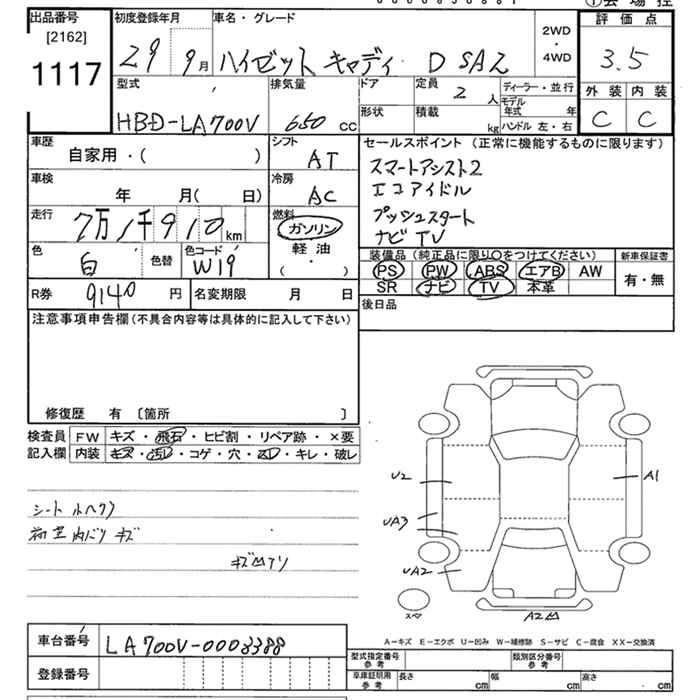 出品番号
[2162]
1117
初度登録年月
29 9月
車名・グレード
ハイゼット キャディ D SAⅡ
2WD
・
4WD
評価点
3.5
外装 内装
C C
型式
HBD-LA700V
排気量
660 cc
ドア
形状
定員
2 人
積載
kg
ディーラー・並行
モデル年式 年
ハンドル 左・右
車歴
自家用・( )
シフト
AT
車検
年 月( 日)
冷房
AC
走行
7万1千910km
燃料
ガソリン
軽油
・
( )
色
白
色替
色コード
W19
R券 9140 円
名変期限 月 日
セールスポイント(正常に機能するものに限ります)
スマートアシスト2
エコアイドル
プッシュスタート
ナビ TV
装備品(純正品に限り○をつけてください)
新車保証書
PS PW ABS エアB AW
有・無
SR ナビ TV 本革
後日品
注意事項申告欄(不具合内容等は具体的に記入して下さい)
修復歴 有 〔箇所 〕
検査員
記入欄
FW キズ・飛石・ヒビ割・リペア跡・×要
内装 キズ・汚れ・コゲ・穴・スレ・キレ・破レ
シート
荷室内バリ キズ
キズ凹アリ
U2
A1
UA3
UA2
スペア
A2凹
A-キズ E-エクボ U-凹み W-補修跡 S-サビ C-腐食 XX-交換済
車台番号 LA700V-0003388
登録番号
型式指定番号
参考
類別区分番号
参考
車庫証明用
参考
長さ cm
幅 cm
高さ cm